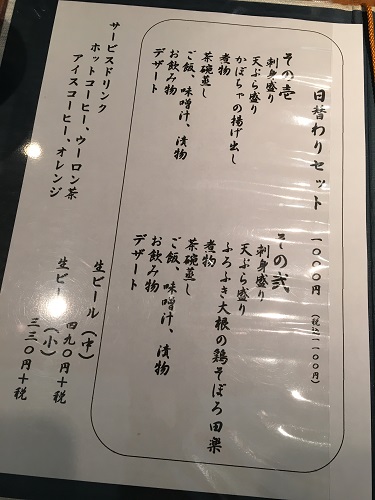 日替わりセット 一〇〇〇円 （税込一一〇〇円）
その壱
刺身盛り
天ぷら盛り
かぼちゃの揚げ出し
煮物
茶碗蒸し
ご飯、味噌汁、漬物
お飲み物
デザート
その弐
刺身盛り
天ぷら盛り
ふろふき大根の鶏そぼろ田楽
煮物
茶碗蒸し
ご飯、味噌汁、漬物
お飲み物
デザート
サービスドリンク
ホットコーヒー、ウーロン茶
アイスコーヒー、オレンジ
生ビール（中）
四九〇円＋税
生ビー （小）
三三〇円＋税